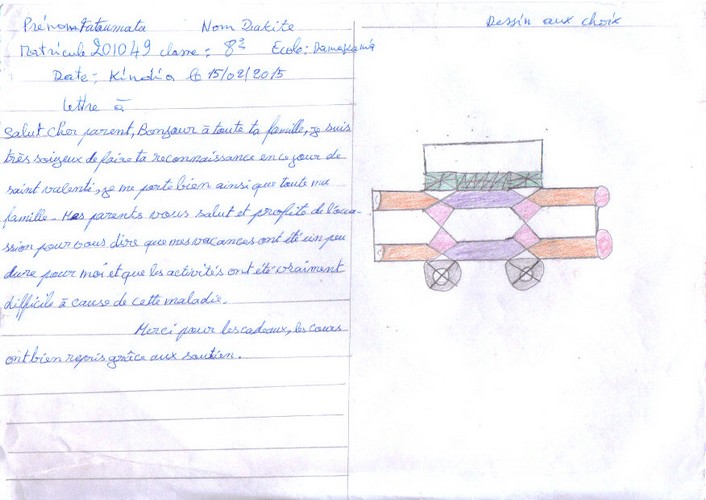 Prénom Fatoumata Nom Diakite
Matricule 201049 classe : 8è Ecole : Damakania
Date : Kindia le 15/02/2015
Lettre à
Salut cher parent, Bonjour à toute ta famille, je suis
très soigeux de faire ta reconnaissance en ce jour de
saint valenti, je me porte bien ainsi que toute ma
famille. Mes parents vous salut et profite de l'occa-
ssion pour vous dire que mes vacances ont été un peu
dure pour moi et que les activités ont été vraiment
difficile à cause de cette maladie.
Merci pour les cadeaux, les cours
ont bien repris grâce aux soutien.
Dessin aux choix